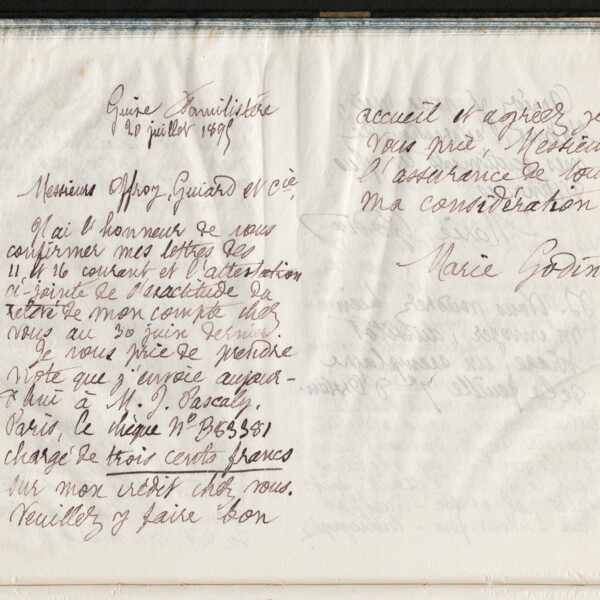 Guise Familistère
20 juillet 1895
Messieurs Offroy, Guiard et Cie,
J'ai l'honneur de vous
confirmer mes lettres des
11 et 16 courant et l'attestation
ci-jointe de l'exactitude du
relevé de mon compte chez
vous au 30 juin dernier.
Je vous prie de prendre
note que j'envoie aujour-
d'hui à M. J. Pascaly,
Paris, le chèque No B63381
chargé de trois cents francs
sur mon crédit chez vous.
Veuillez y faire bon
accueil et agréer, je
vous prie, Messieurs
l'assurance de tou
ma considération
Marie Godin